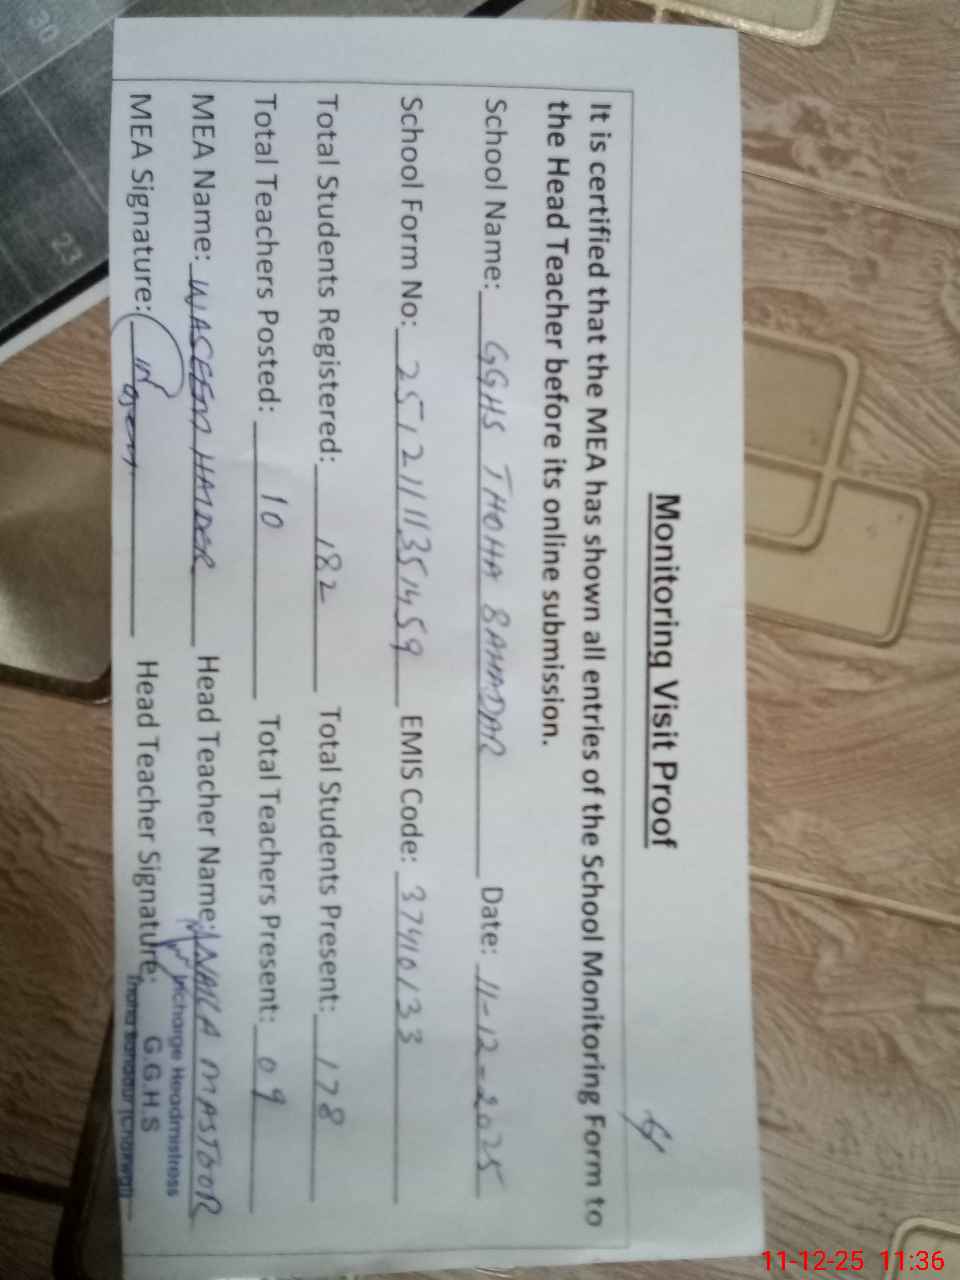 Monitoring Visit Proof
It is certified that the MEA has shown all entries of the School Monitoring Form to
the Head Teacher before its online submission.
School Name: GGHS THOHA BAHADAR Date: 11-12-2025
School Form No: EMIS Code: 37410133
Total Students Registered: 182 Total Students Present: 178
Total Teachers Posted: 10 Total Teachers Present: 09
MEA Name: WASEEM HAIDER Head Teacher Name: NAILA MASTOOR
MEA Signature: Head Teacher Signature:
Incharge Headmistress
G.G.H.S
30
23
11-12-25 11:36